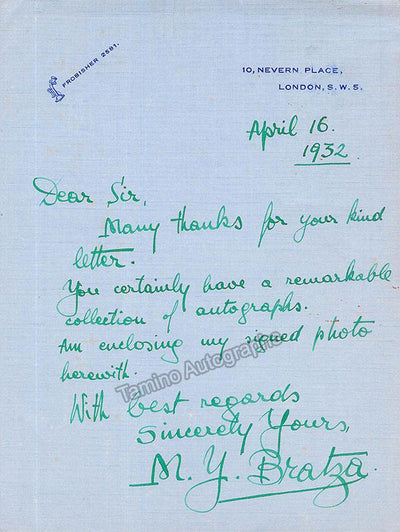 FROBISHER 2581.
10, NEVERN PLACE,
LONDON, S.W. 5.
April 16.
1932
Dear Sir,
Many thanks for your kind
letter.
You certainly have a remarkable
collection of autographs.
Am enclosing my signed photo
herewith.
Tamino Autographs
With best regards
Sincerely Yours,
M. Y. Bratza.